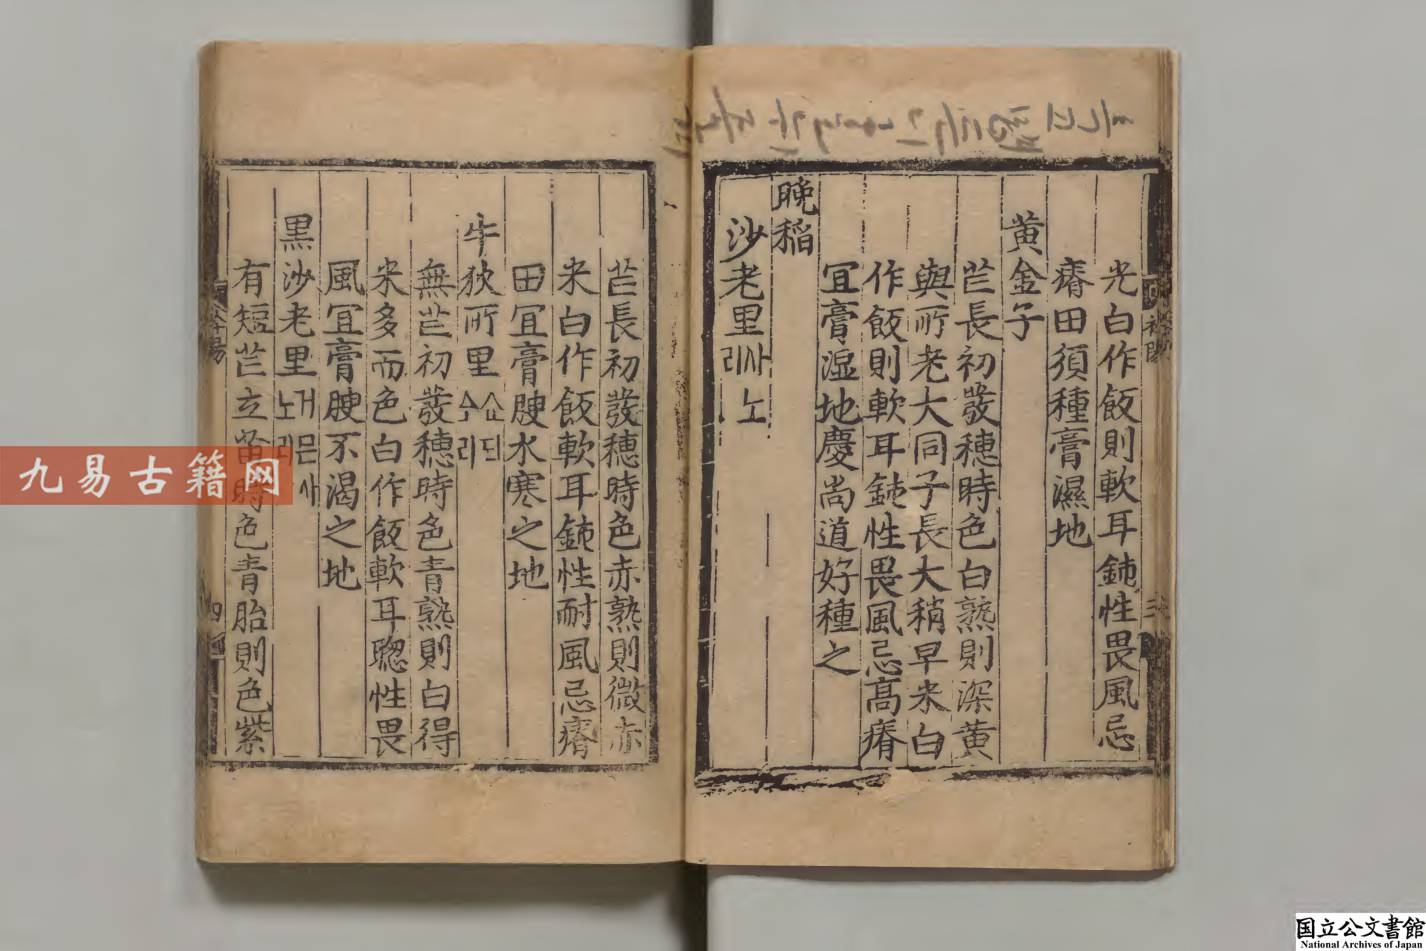 光白作飯則軟耳鈍性畏風忌
瘠田須種膏濕地
黄金子
芒長初發穗時色白熟則深黄
與所老大同子長大稍早米白
作飯則軟耳鈍性畏風忌高瘠
冝膏湿地慶尚道好種之
晩稲
沙老里사노리
芒長初發穗時色赤熟則微赤
米白作飯軟耳鈍性耐風忌瘠
田冝膏腴水寒之地
牛狄所里쇼되소리
無芒初發穗時色青熟則白得
米多而色白作飯軟耳聦性畏
風冝膏腴不渴之地
黒沙老里거믄사노리
有短芒立苗時色青胎則色紫
九易古籍网
国立公文書館
National Archives of Japan